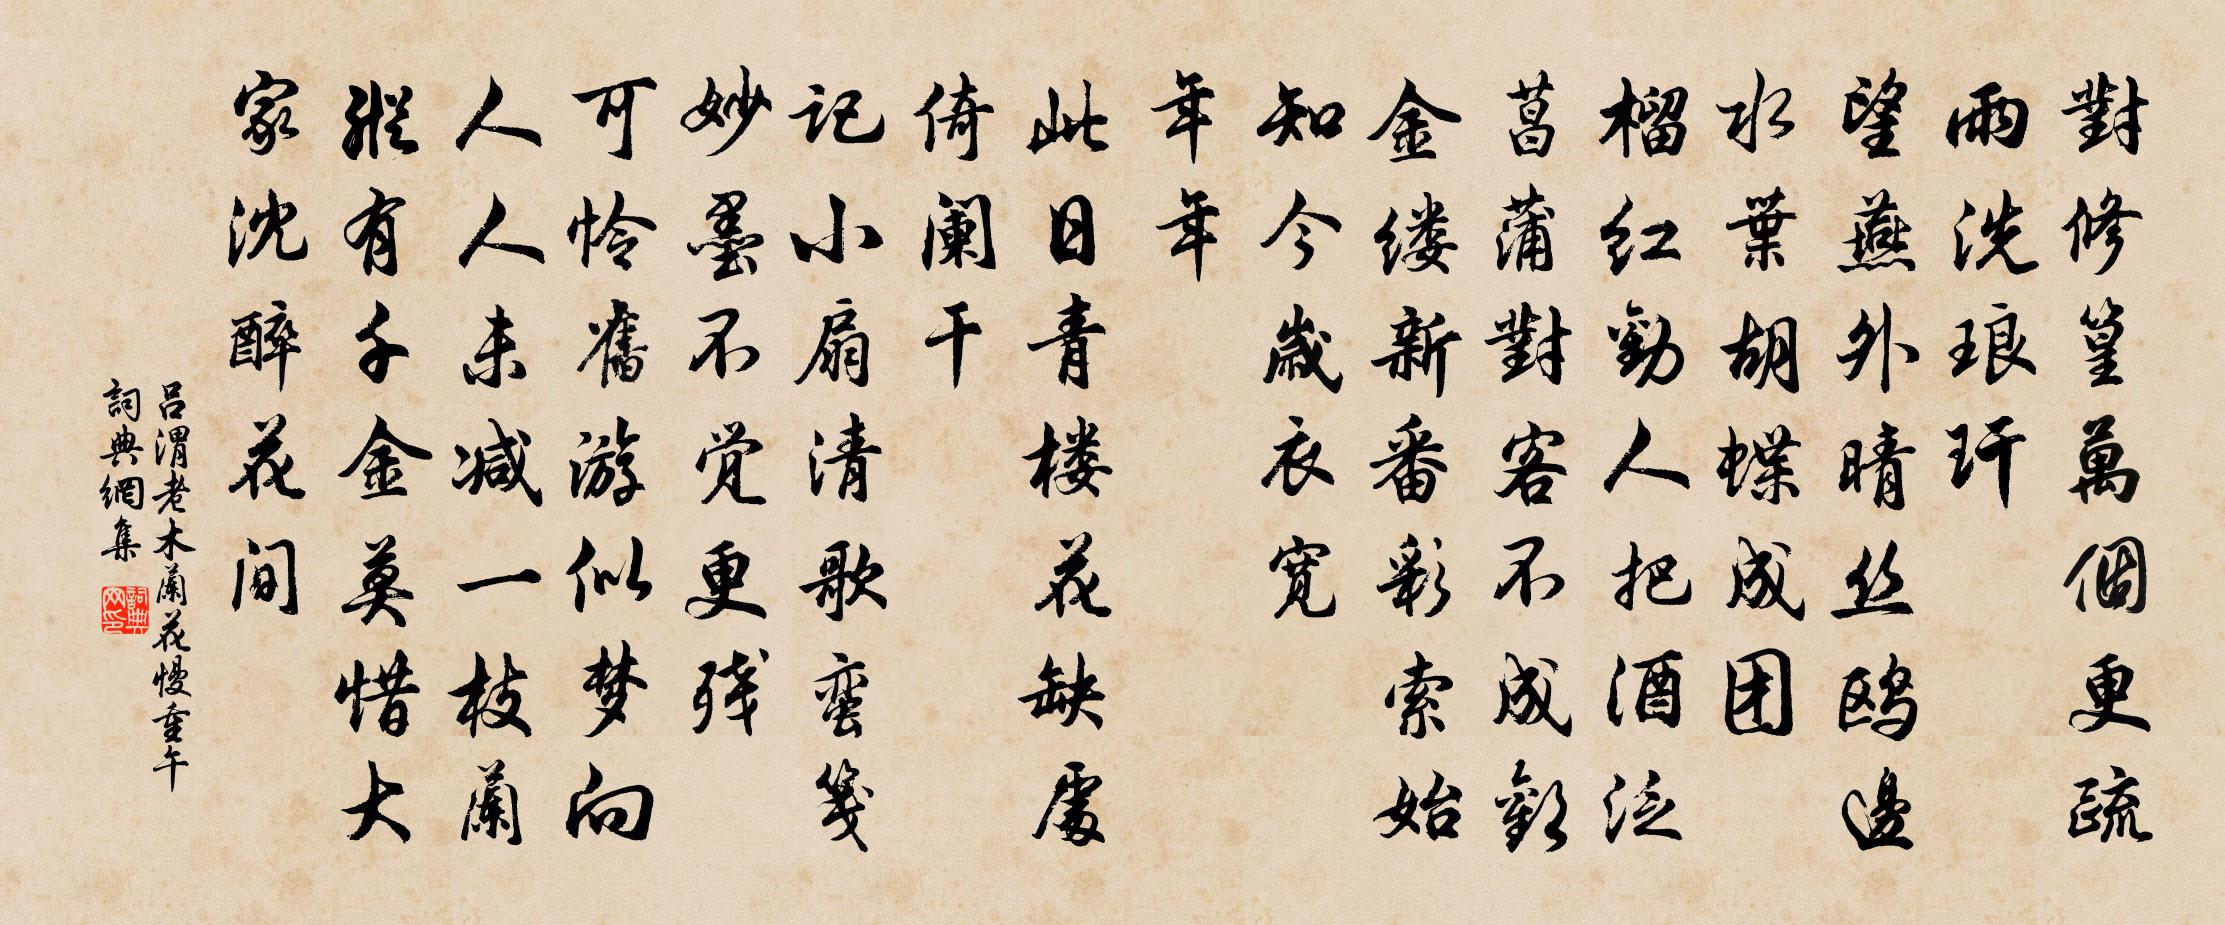 對修篁萬個更疏
雨洗琅玕
望燕外晴丝鸥邊
水葉胡蝶成团
榴红勸人把酒泛
菖蒲對客不成歡
金缕新番彩索始
知今歲衣寬
年年
此日青楼花缺處
倚阑干
记小扇清歌蛮笺
妙墨不觉更残
可怜舊游似梦向
人人未减一枝蘭
縱有千金莫惜大
家沈醉花间
吕渭老木蘭花慢重午
詞典網集
詞典网印